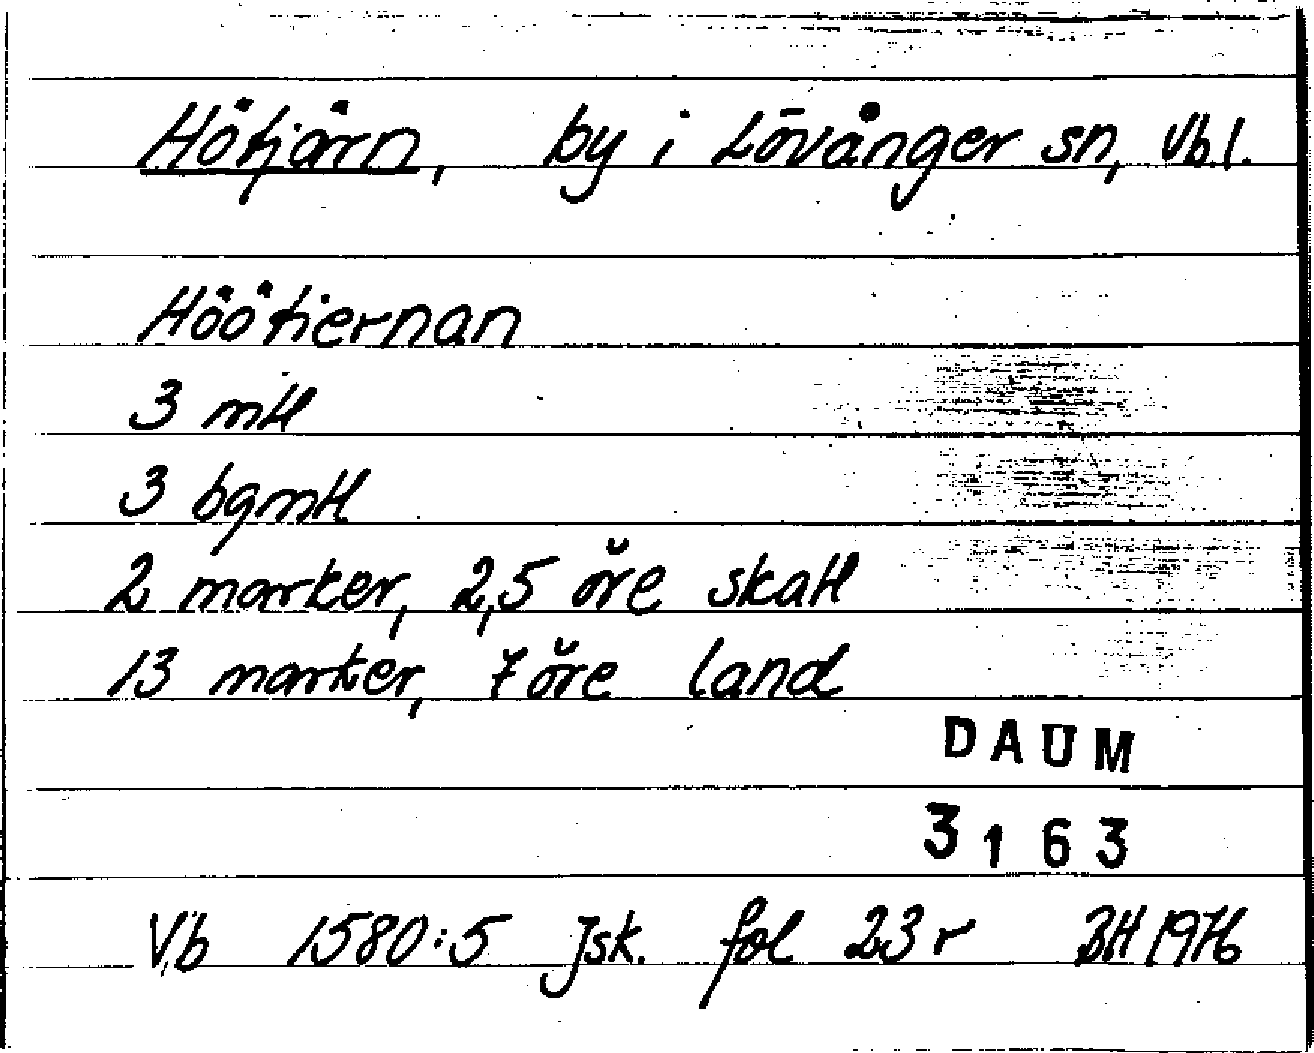 Hötjärn, by i Lövånger sn, Vb.l.
Höötiernan
3 mtl
3 bgmtl
2 marker, 2,5 öre skatt
13 marker, 7 öre land
DAUM
3163
Vb 1580:5 Jsk. fol 23 r BH 1976